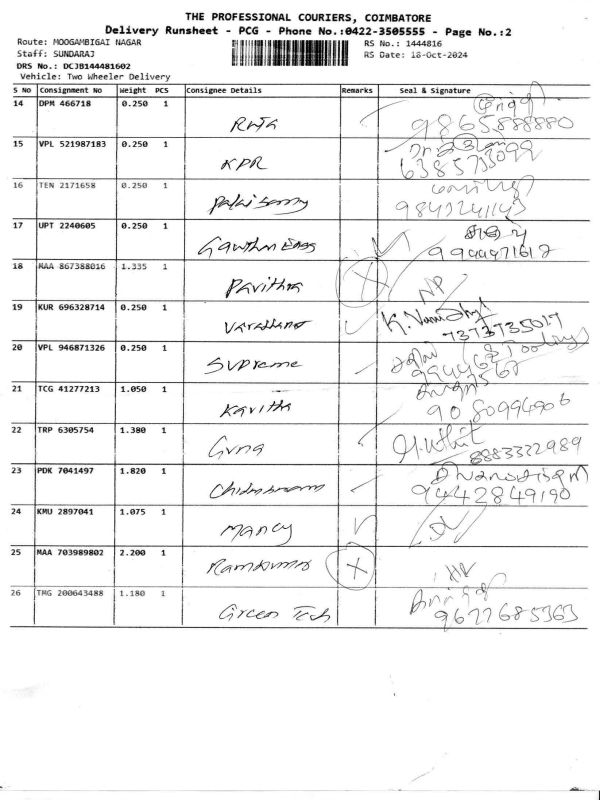 THE PROFESSIONAL COURIERS, COIMBATORE
Delivery Runsheet - PCG - Phone No.:0422-3505555 - Page No.:2
Route: MOOGAMBIGAI NAGAR RS No.: 1444816
Staff: SUNDARAJ RS Date: 18-Oct-2024
DRS No.: DCJB144481602
Vehicle: Two Wheeler Delivery
S No Consignment No Weight PCS Consignee Details Remarks Seal & Signature
14 DPM 466718 0.250 1
Raja 9865888880
15 VPL 521987183 0.250 1
KPR 6385733099
16 TEN 2171658 0.250 1
Palaisamy
17 UPT 2240605 0.250 1
Gowthm Engg 9944471612
18 MAA 867388016 1.335 1
Pavithra NP
19 KUR 696328714 0.250 1
Varathana 7373735017
20 VPL 946871326 0.250 1
Supreme
21 TCG 41277213 1.050 1
Kavitha 9080994906
22 TRP 6305754 1.380 1
Guna 8883322989
23 PDK 7041497 1.820 1
9442849190
24 KMU 2897041 1.075 1
Mancy
25 MAA 703989802 2.200 1
Ramkumar
26 TMG 200643488 1.180 1
Green Tech 9677685363